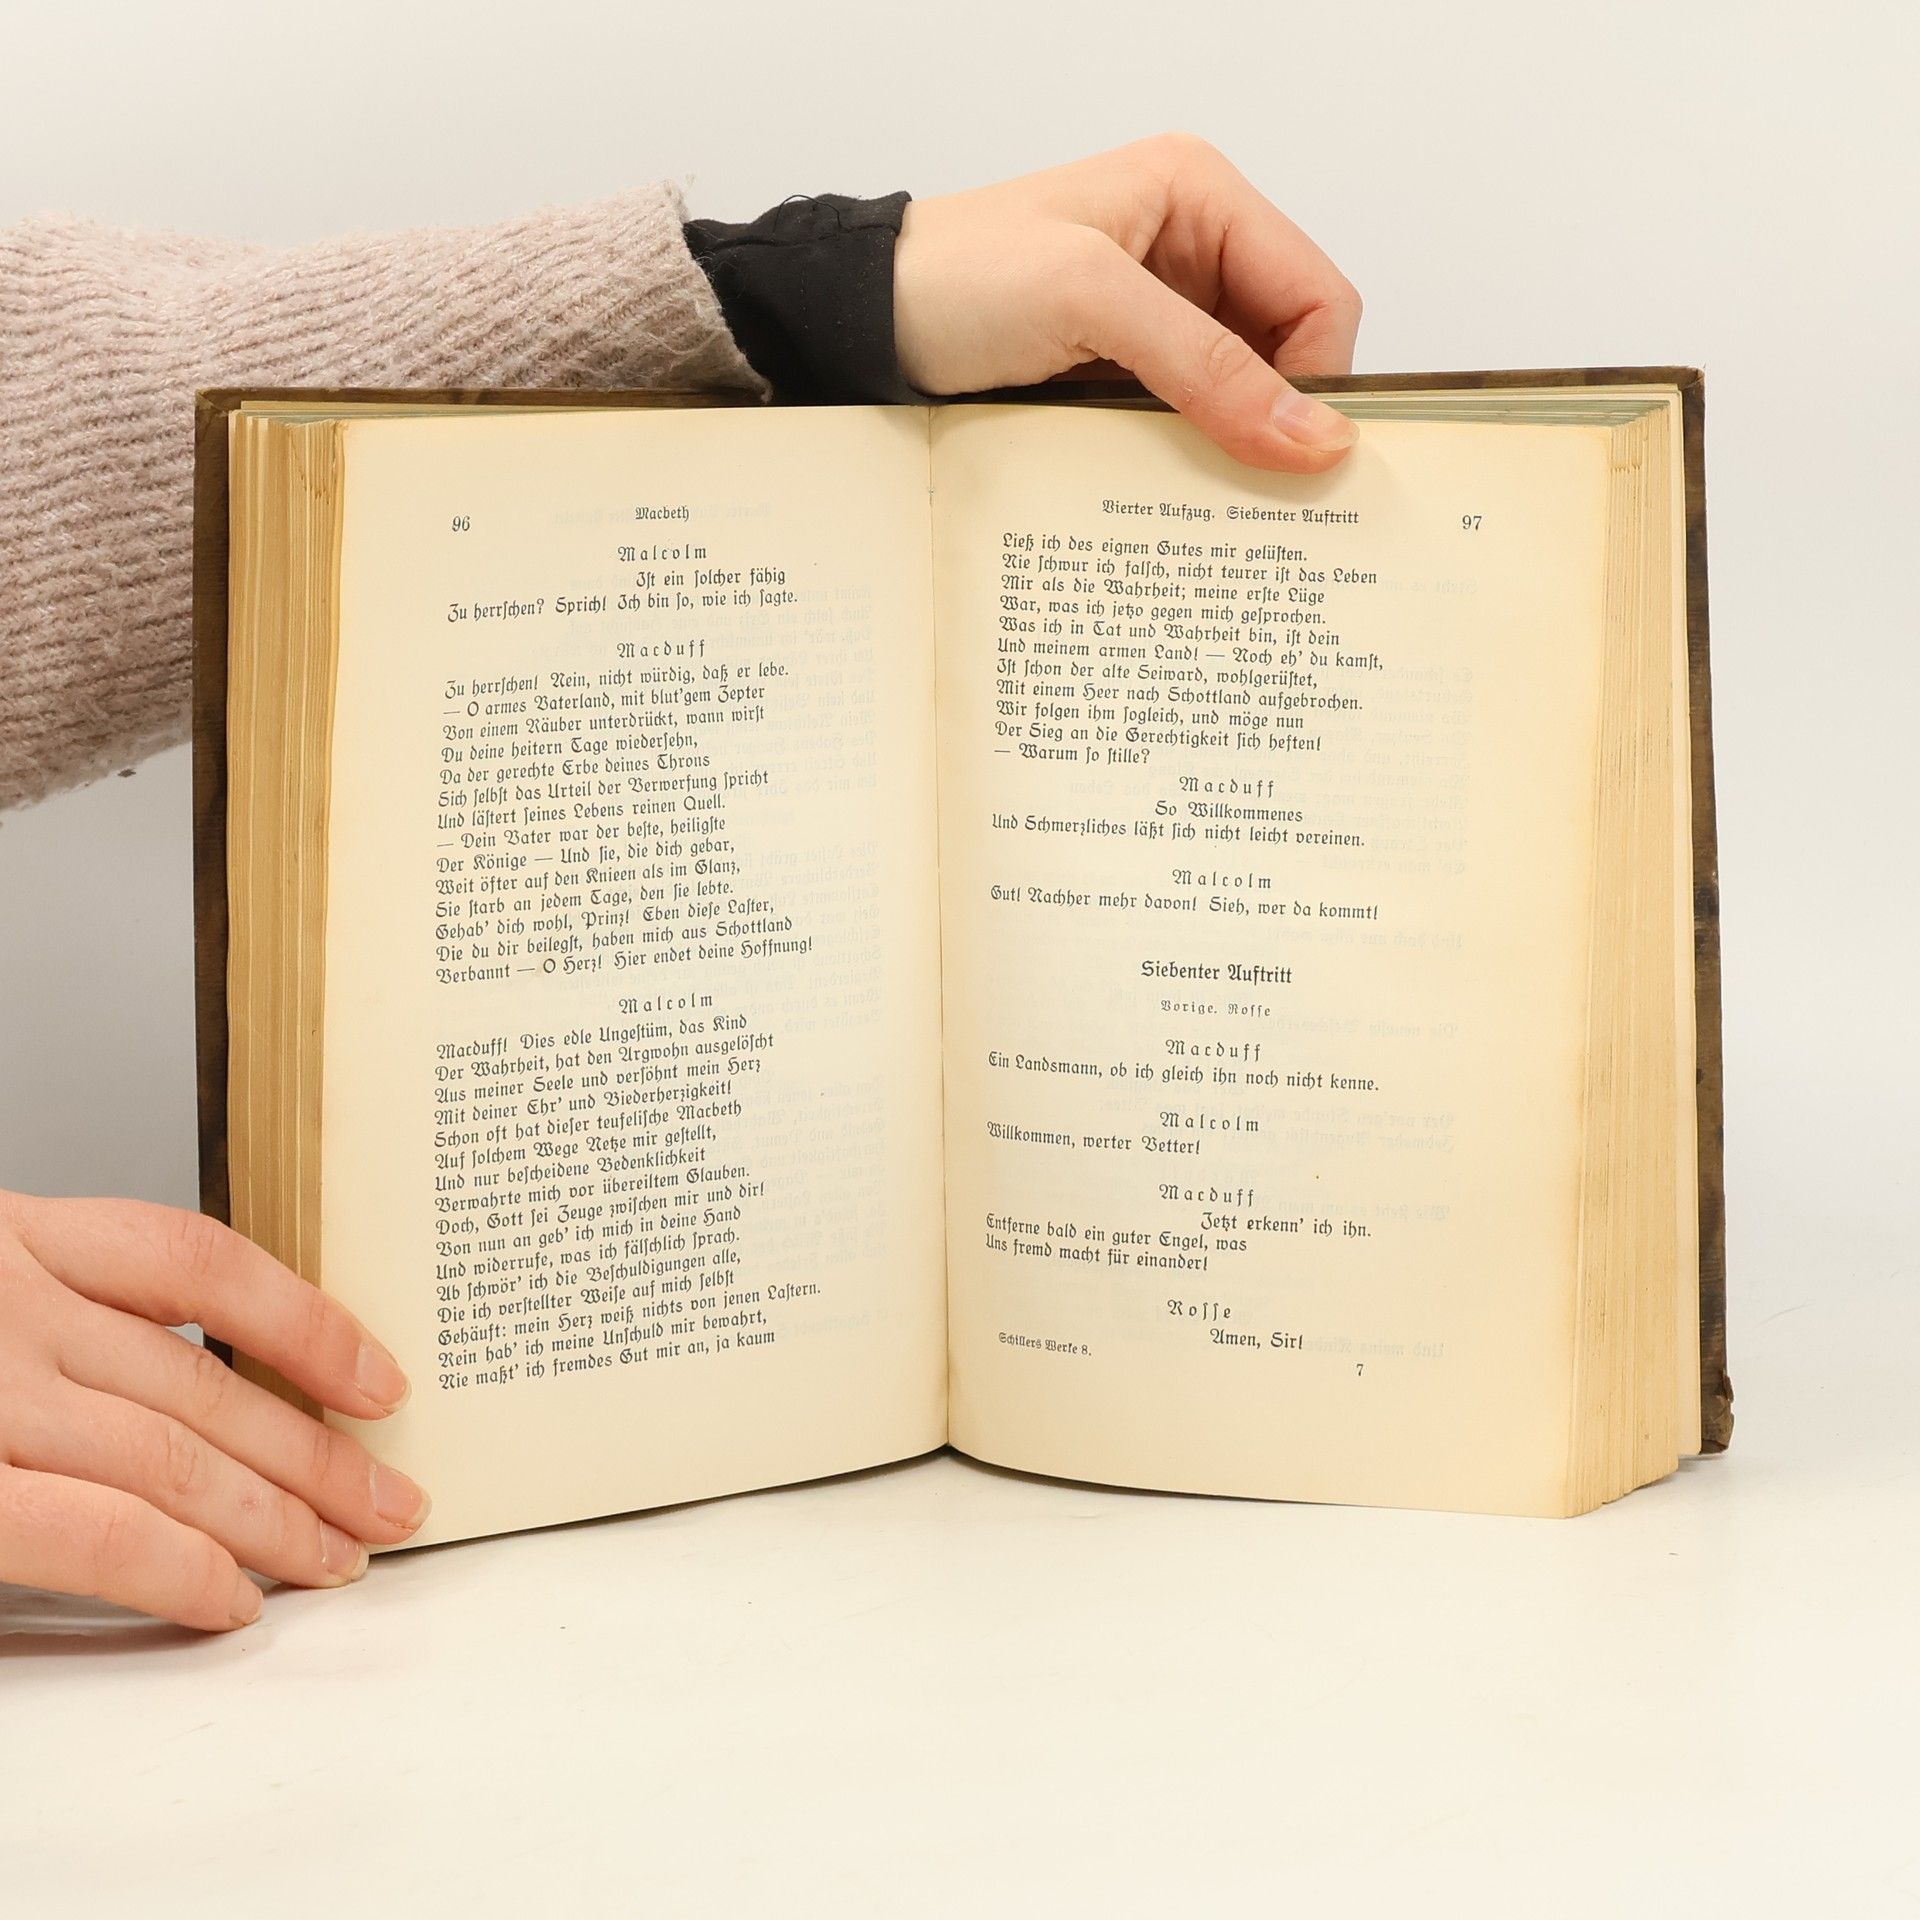 96
Macbeth
Malcolm
Ist ein solcher fähig
Zu herrschen? Sprich! Ich bin so, wie ich sagte.
Macduff
Zu herrschen! Nein, nicht würdig, daß er lebe.
— O armes Vaterland, mit blut'gem Zepter
Von einem Räuber unterdrückt, wann wirst
Du deine heitern Tage wiedersehn,
Da der gerechte Erbe deines Throns
Sich selbst das Urteil der Verwerfung spricht
Und lästert seines Lebens reinen Quell.
— Dein Vater war der beste, heiligste
Der Könige — Und sie, die dich gebar,
Weit öfter auf den Knieen als im Glanz,
Sie starb an jedem Tage, den sie lebte.
Gehab' dich wohl, Prinz! Eben diese Laster,
Die du dir beilegst, haben mich aus Schottland
Verbannt — O Herz! Hier endet deine Hoffnung!
Malcolm
Macduff! Dies edle Ungestüm, das Kind
Der Wahrheit, hat den Argwohn ausgelöscht
Aus meiner Seele und versöhnt mein Herz
Mit deiner Ehr' und Biederherzigkeit!
Schon oft hat dieser teufelische Macbeth
Auf solchem Wege Netze mir gestellt,
Und nur bescheidene Bedenklichkeit
Verwahrte mich vor übereiltem Glauben.
Doch, Gott sei Zeuge zwischen mir und dir!
Von nun an geb' ich mich in deine Hand
Und widerrufe, was ich fälschlich sprach.
Ab schwör' ich die Beschuldigungen alle,
Die ich verstellter Weise auf mich selbst
Gehäuft: mein Herz weiß nichts von jenen Lastern.
Rein hab' ich meine Unschuld mir bewahrt,
Nie maßt' ich fremdes Gut mir an, ja kaum
Vierter Aufzug. Siebenter Auftritt
97
Ließ ich des eignen Gutes mir gelüsten.
Nie schwur ich falsch, nicht teurer ist das Leben
Mir als die Wahrheit; meine erste Lüge
War, was ich jetzo gegen mich gesprochen.
Was ich in Tat und Wahrheit bin, ist dein
Und meinem armen Land! — Noch eh' du kamst,
Ist schon der alte Seiward, wohlgerüstet,
Mit einem Heer nach Schottland aufgebrochen.
Wir folgen ihm sogleich, und möge nun
Der Sieg an die Gerechtigkeit sich heften!
— Warum so stille?
Macduff
So Willkommenes
Und Schmerzliches läßt sich nicht leicht vereinen.
Malcolm
Gut! Nachher mehr davon! Sieh, wer da kommt!
Siebenter Auftritt
Vorige. Rosse
Macduff
Ein Landsmann, ob ich gleich ihn noch nicht kenne.
Malcolm
Willkommen, werter Vetter!
Macduff
Jetzt erkenn' ich ihn.
Entferne bald ein guter Engel, was
Uns fremd macht für einander!
Rosse
Amen, Sir!
Schillers Werke 8.
7